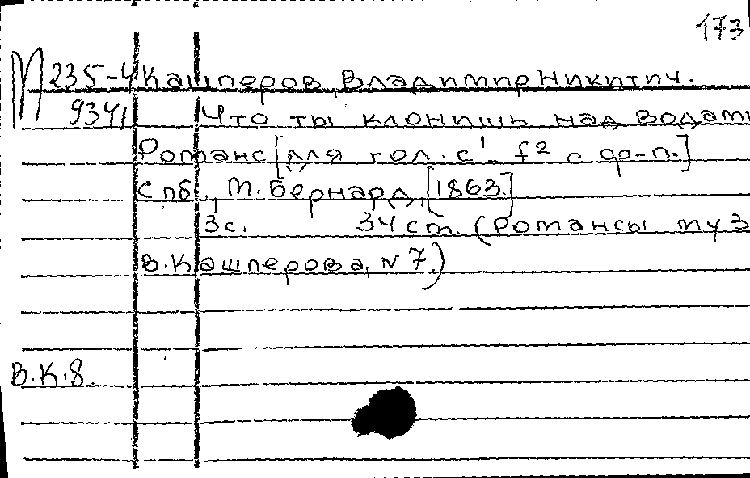 173
М 235-4 Кашперов, Владимир Никитич.
934, Что ты клонишь над водами
Романс [для гол. c¹- f² с ф-п.]
Спб., М. Бернард, [1863]
3с. 34 см. (Романсы муз
В. Кашперова, N 7.)
В.К.8.